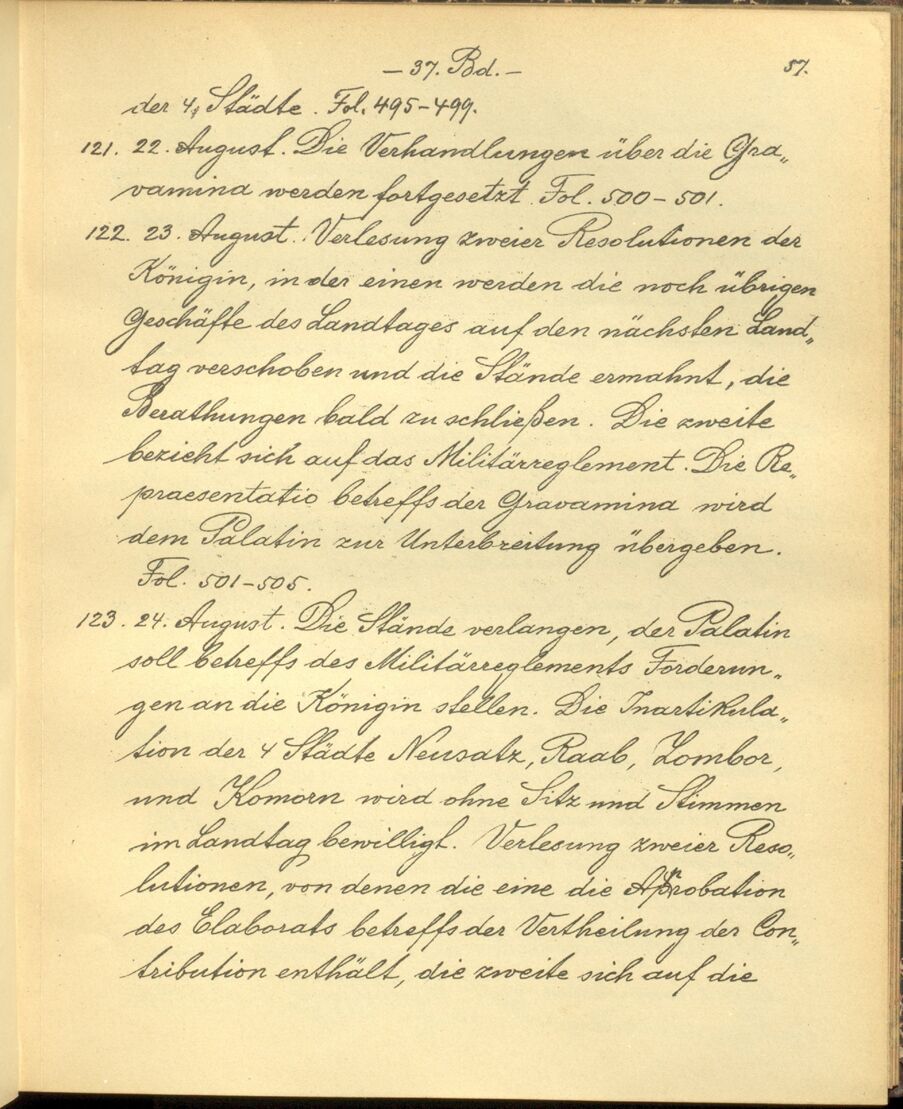 – 37. Bd. – 57.
der 4 Städte. Fol. 495–499.
121. 22. August. Die Verhandlungen über die Gra„
vamina werden fortgesetzt. Fol. 500–501.
122. 23. August. Verlesung zweier Resolutionen der
Königin, in der einen werden die noch übrigen
Geschäfte des Landtages auf den nächsten Land„
tag verschoben und die Stände ermahnt, die
Berathungen bald zu schließen. Die zweite
bezieht sich auf das Militärreglement. Die Re„
praesentatio betreffs der Gravamina wird
dem Palatin zur Unterbreitung übergeben.
Fol. 501–505.
123. 24. August. Die Stände verlangen, der Palatin
soll betreffs des Militärreglements Forderun„
gen an die Königin stellen. Die Inartikula„
tion der 4 Städte Neusatz, Raab, Zombor,
und Komorn wird ohne Sitz und Stimmen
im Landtag bewilligt. Verlesung zweier Reso„
lutionen, von denen die eine die Approbation
des Elaborats betreffs der Vertheilung der Con„
tribution enthält, die zweite sich auf die